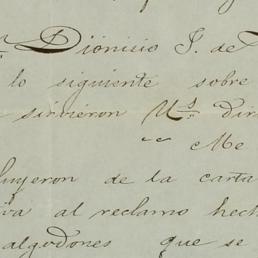 n Dionisio J. de
lo siguiente sobre
sirvieron Us. dir
Me
luyeron de la carta
va al reclamo hech
algodones que se